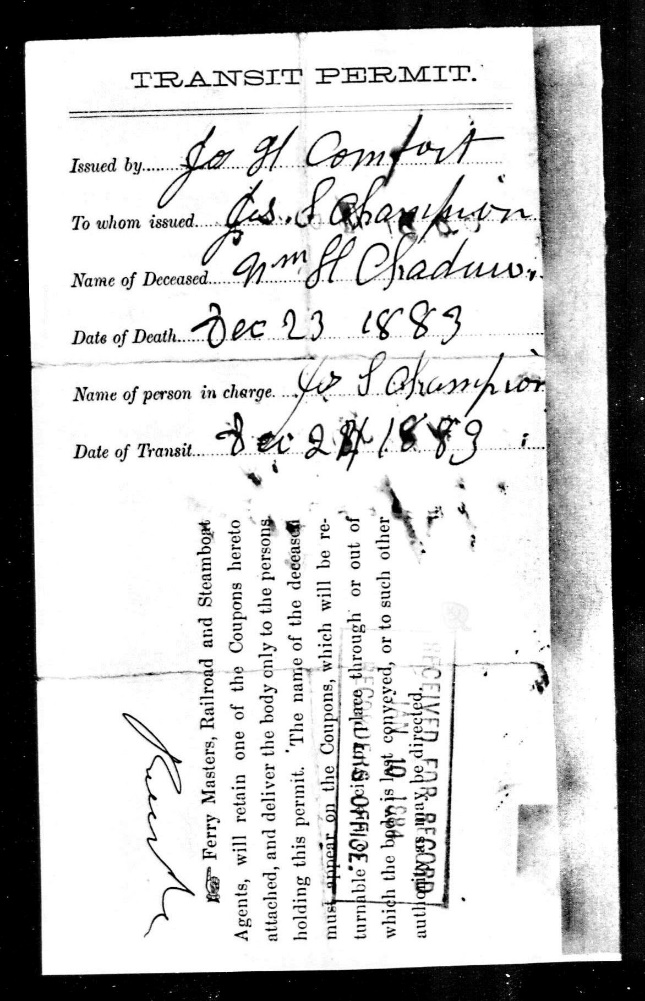 TRANSIT PERMIT.
Issued by Jos H Comfort
To whom issued Jos. S Champion
Name of Deceased Wm H
Date of Death Dec 23 1883
Name of person in charge Jos S Champion
Date of Transit Dec 24 1883
☞ Ferry Masters, Railroad and Steamboat
Agents, will retain one of the Coupons hereto
attached, and deliver the body only to the persons
holding this permit. The name of the deceased
must appear on the Coupons, which will be re-
turnable to city place through or out of
which the body is last conveyed, or to such other
authority as may be directed.
RECEIVED FOR RECORD
JAN 10 1884
RECORDER'S OFFICE.